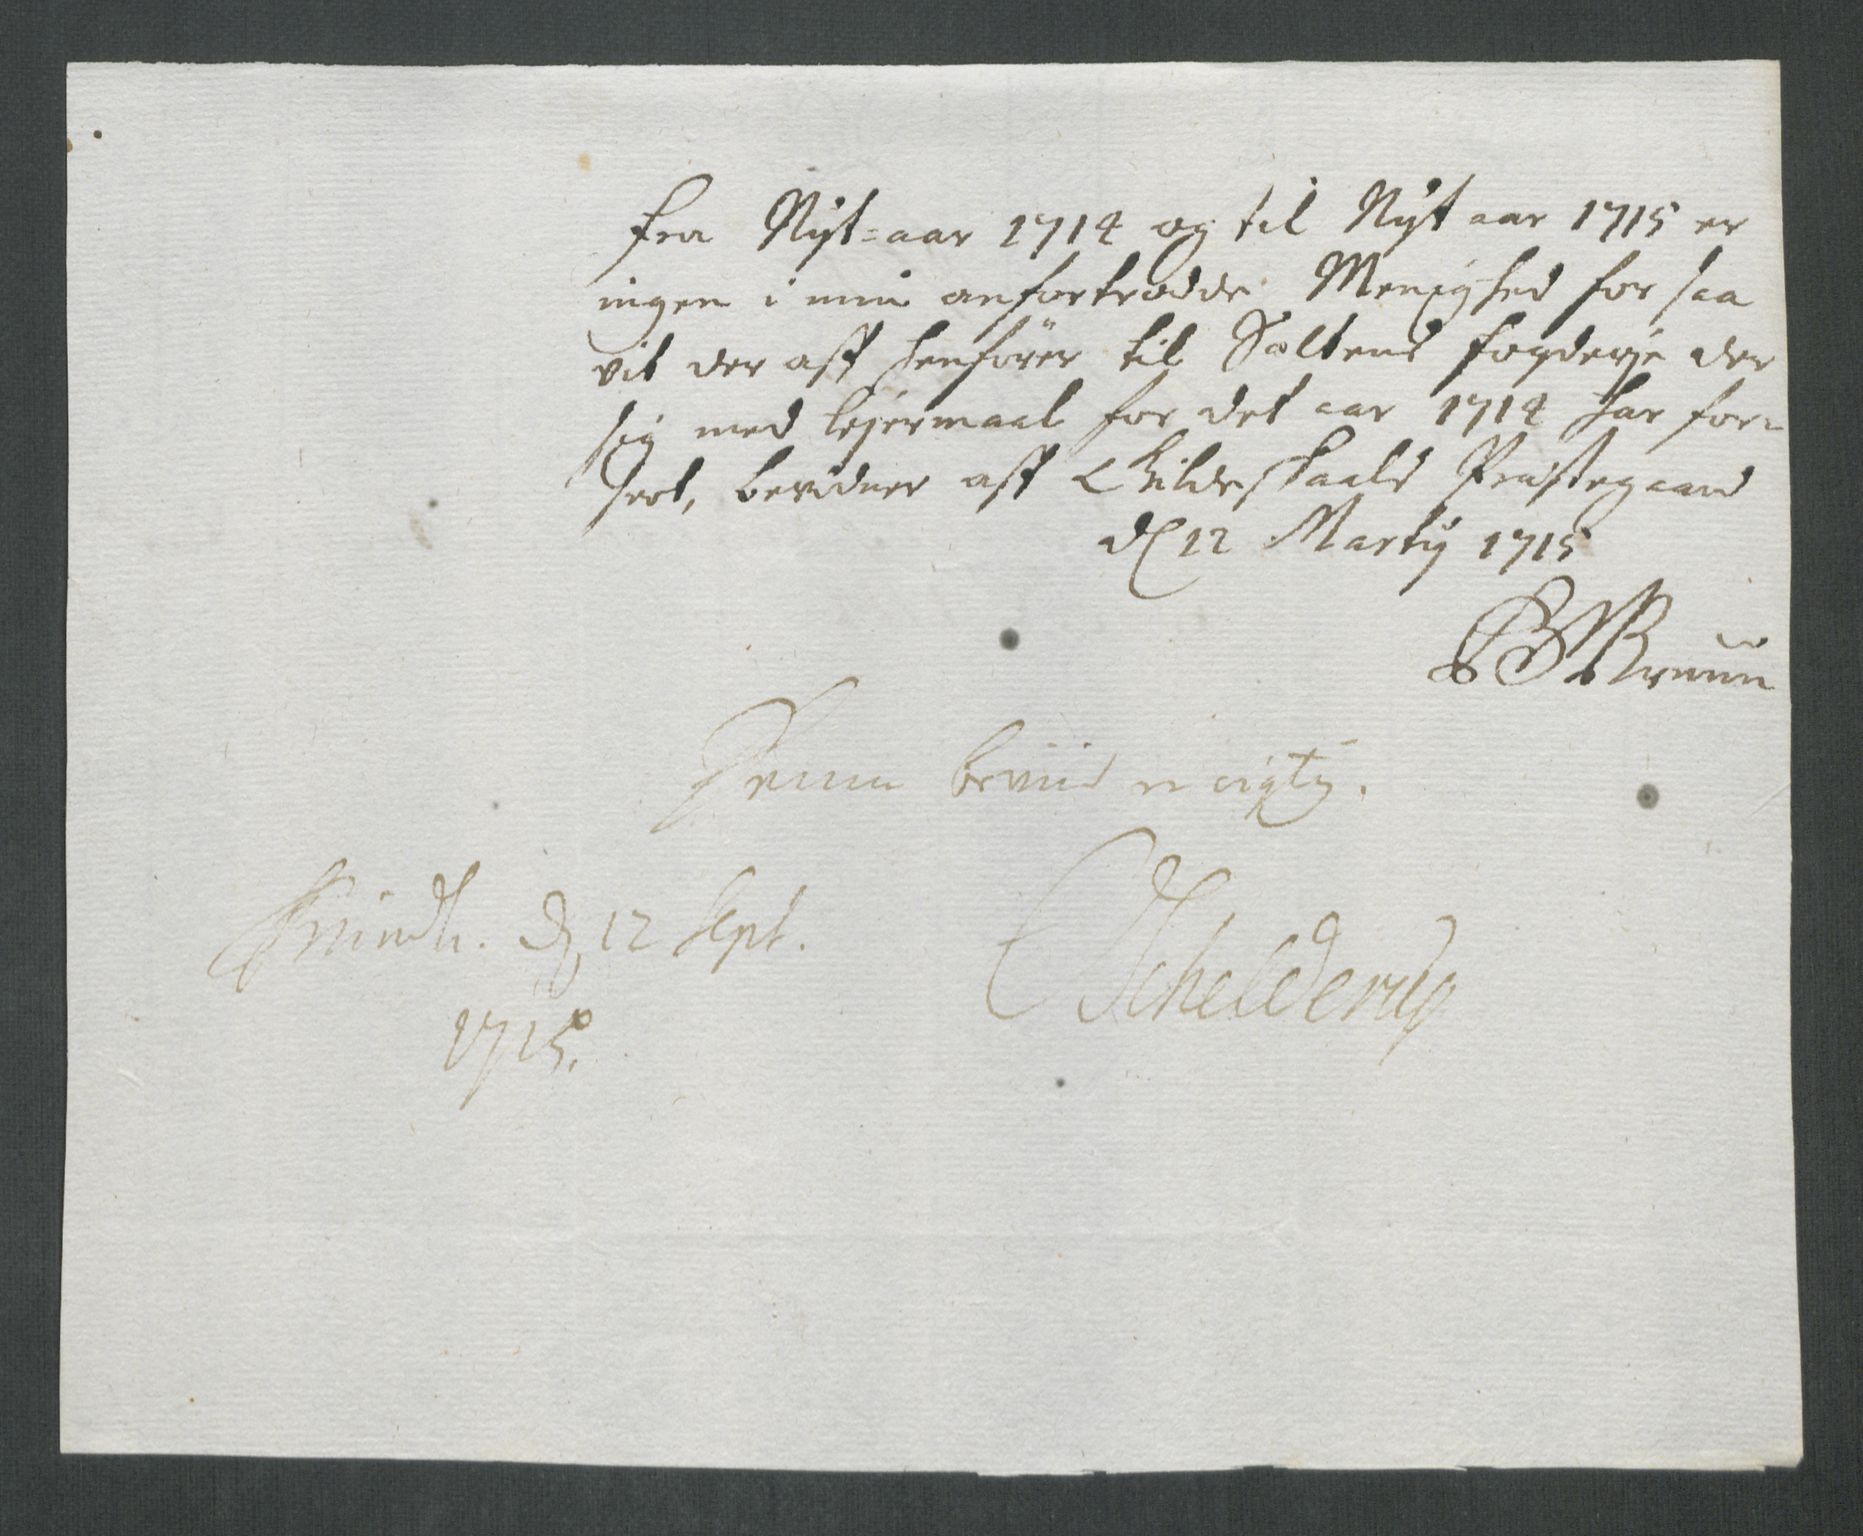 fra Nyt=aar 1714 og til Nyt aar 1715 er
ingen i min anfortrodde Menighed for saa
vit der aff henhører til Saltens fogderje der
sig med lejermaal for det aar 1714 har for-
seet, bevidner aff Gildeskaals Præstegaard
d 12 Martij 1715
Bruun
Denne beviis er rigtig.
Trundh. d 12 Sept.
1715.
Schelderup